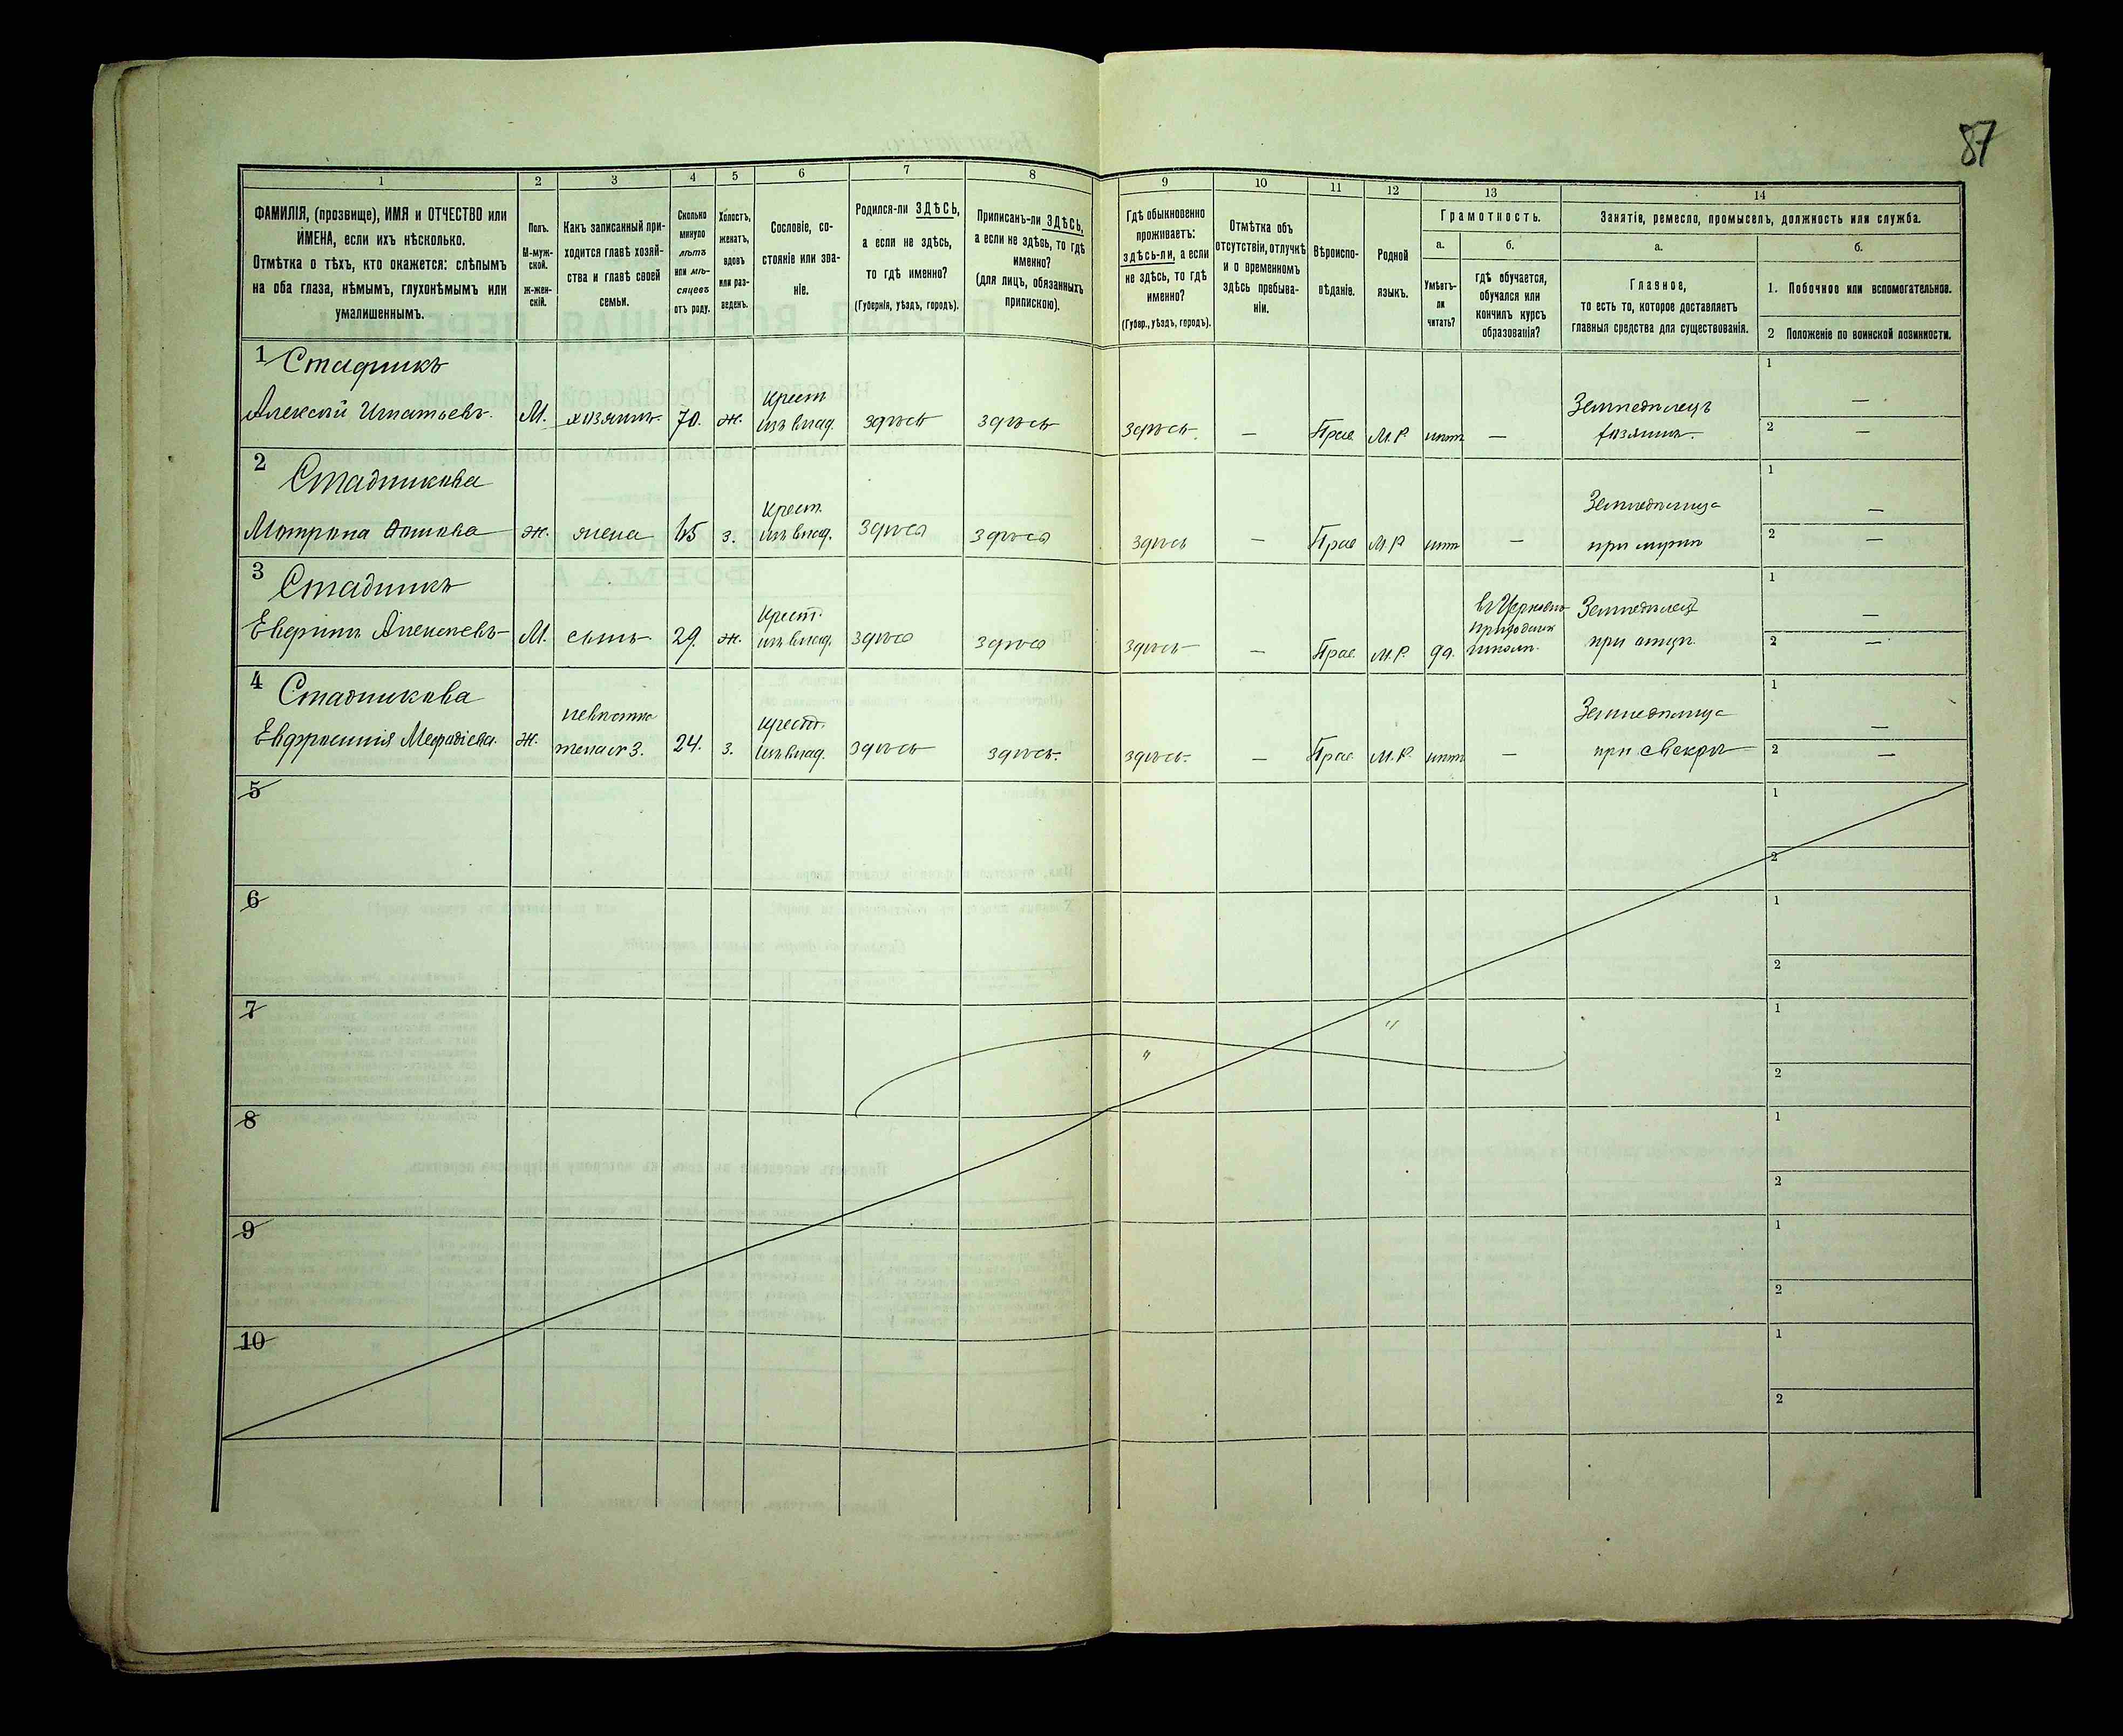 87
1 2 3 4 5 6 7 8 9 10 11 12 13 14
ФАМИЛІЯ, (прозвище), ИМЯ и ОТЧЕСТВО или
ИМЕНА, если ихъ нѣсколько.
Отмѣтка о тѣхъ, кто окажется: слѣпымъ
на оба глаза, нѣмымъ, глухонѣмымъ или
умалишеннымъ.
Полъ.
М-муж-
ской.
ж-жен-
скій.
Какъ записанный при-
ходится главѣ хозяй-
ства и главѣ своей
семьи.
Сколько
минуло
лѣтъ
или мѣ-
сяцевъ
отъ роду.
Холостъ,
женатъ,
вдовъ
или раз-
веденъ.
Сословіе, со-
стояніе или зва-
ніе.
Родился-ли ЗДѢСЬ,
а если не здѣсь,
то гдѣ именно?
(Губернія, уѣздъ, городъ).
Приписанъ-ли ЗДѢСЬ,
а если не здѣсь, то гдѣ
именно?
(для лицъ, обязанныхъ
припискою).
Гдѣ обыкновенно
проживаетъ:
здѣсь-ли, а если
не здѣсь, то гдѣ
именно?
(Губер., уѣздъ, городъ).
Отмѣтка объ
отсутствіи, отлучкѣ
и о временномъ
здѣсь пребыва-
ніи.
Вѣроиспо-
вѣданіе.
Родной
языкъ.
Грамотность.
а.
Умѣетъ-
ли
читать?
б.
гдѣ обучается,
обучался или
кончилъ курсъ
образованія?
Занятіе, ремесло, промыселъ, должность или служба.
а.
Главное,
то есть то, которое доставляетъ
главныя средства для существованія.
б.
1. Побочное или вспомогательное.
2 Положеніе по воинской повинности.
1 Стадникъ
Крест 1 —
Алексѣй Игнатьевъ. М. хозяинъ. 70. ж. изъ влад. здѣсь здѣсь здѣсь. — Прав. М.Р. нѣтъ —
Земледѣлецъ
хозяинъ. 2 —
2 Стадникова
Крест. 1 —
Матрона ж. жена 65 з. изъ влад. здѣсь здѣсь здѣсь — Прав М.Р нѣтъ —
Земледѣлица
при мужѣ 2 —
3 Стадникъ
Крест. 1 —
Алексѣевъ М. сынъ 29. ж. изъ влад. здѣсь здѣсь здѣсь — Прав. М.Р. да.
въ Церковно
приходск
школѣ.
Земледѣлецъ
при отцѣ. 2 —
4 Стадникова
невѣстка Крест. 1 —
Евфросинія Мефодіева. ж. 3. 24. з. изъ влад. здѣсь здѣсь. здѣсь. — Прав. М.Р. нѣтъ —
Земледѣлица
при свекрѣ 2 —
5 1
2
6 1
2
7 1
2
8 1
2
9 1
2
10 1
2